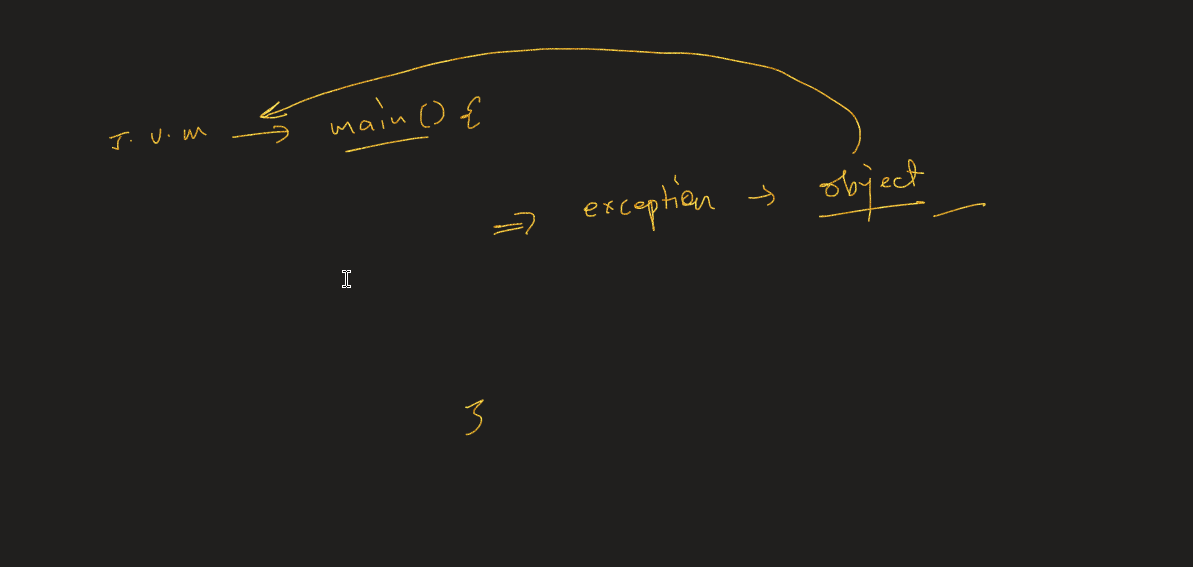 J.V.M → main() {
⇒ exception → object
}